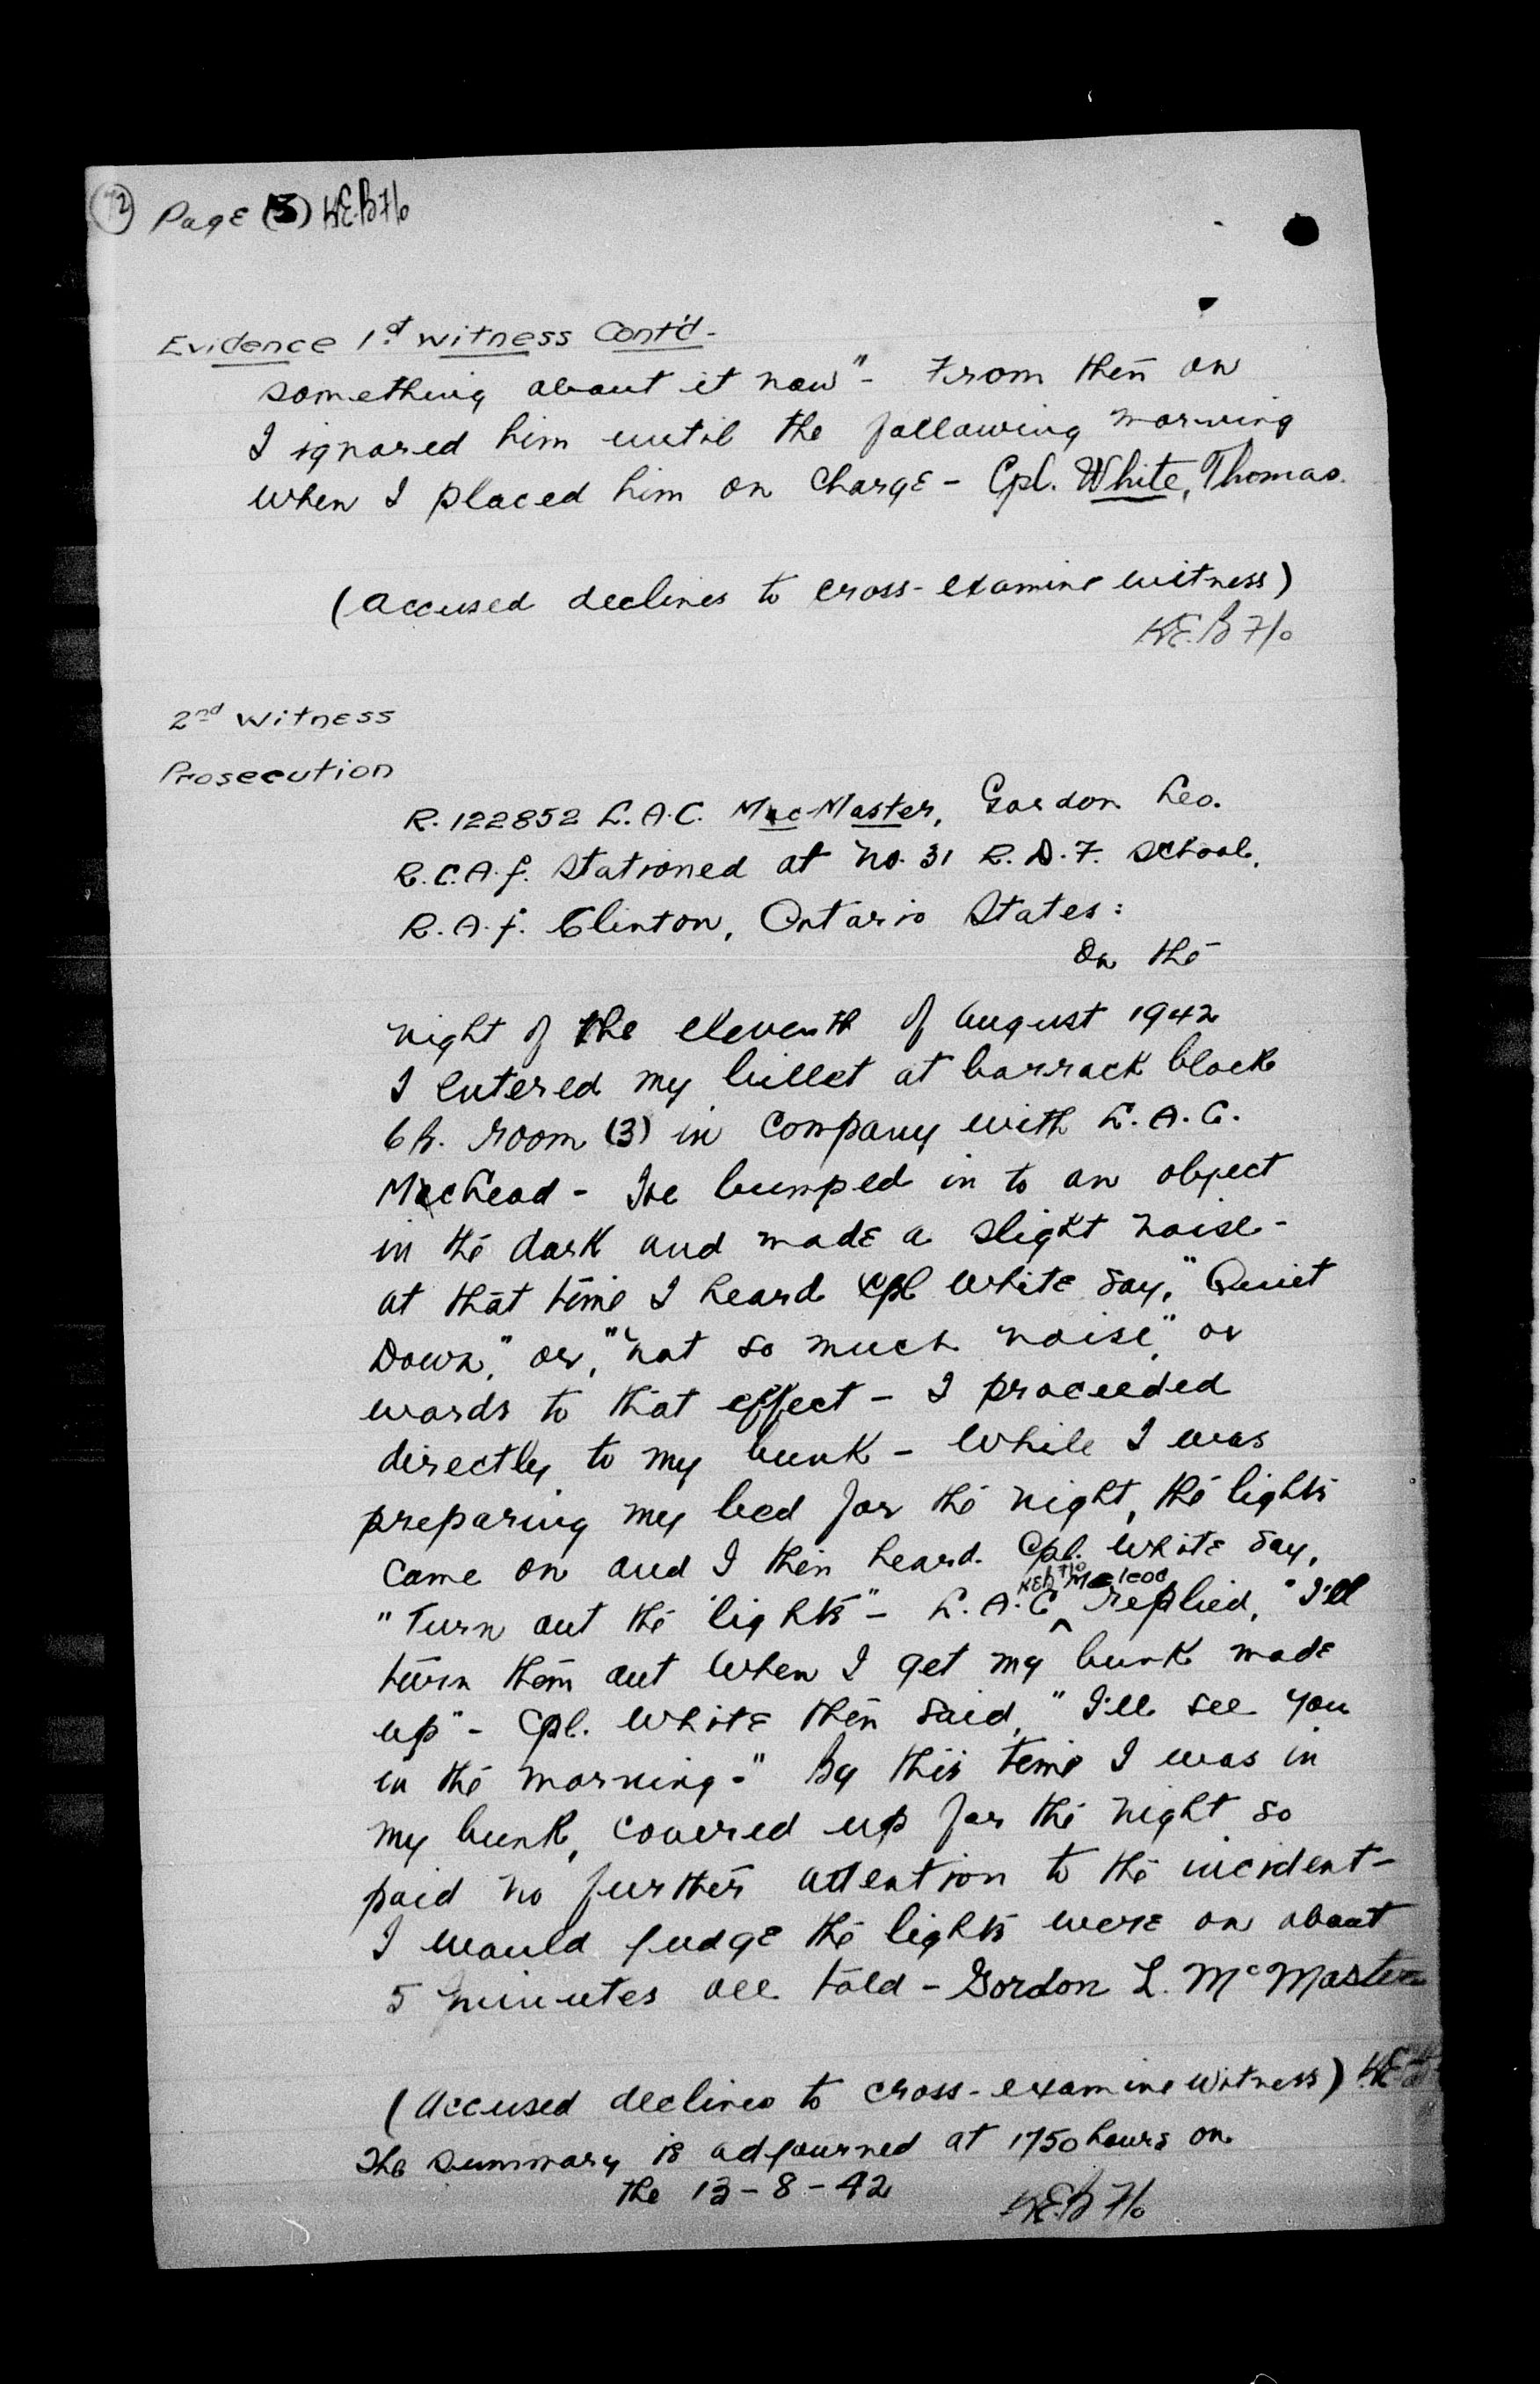 72 Page (3) K.E.B F/o
Evidence 1st witness Cont'd -
something about it now" - From then on
I ignored him until the following morning
when I placed him on charge - Cpl. White, Thomas.
(Accused declines to cross-examine witness)
K.E.B F/o
2nd Witness
Prosecution
R.122852 L.A.C. MacMaster, Gordon Leo.
R.C.A.F. stationed at No. 31 R.D.F. School,
R.A.F. Clinton, Ontario States:
On the
night of the eleventh of August 1942
I entered my billet at barrack block
6 room (3) in company with L.A.C.
MacLeod - He bumped in to an object
in the dark and made a slight noise -
at that time I heard Cpl White say, "Quiet
Down," or, "not so much noise," or
words to that effect - I proceeded
directly to my bunk - While I was
preparing my bed for the night, the lights
came on and I then heard Cpl. White say,
K.E.B F/o McLeod
"Turn out the lights" - L.A.C ^ replied, "I'll
turn them out when I get my bunk made
up" - Cpl. White then said, "I'll see you
in the morning." By this time I was in
my bunk, covered up for the night so
paid no further attention to the incident -
I would judge the lights were on about
5 minutes all told - Gordon L. McMaster
(Accused declines to cross-examine witness) K.E.B
The summary is adjourned at 1750 hours on
the 13-8-42
K.E.B F/o